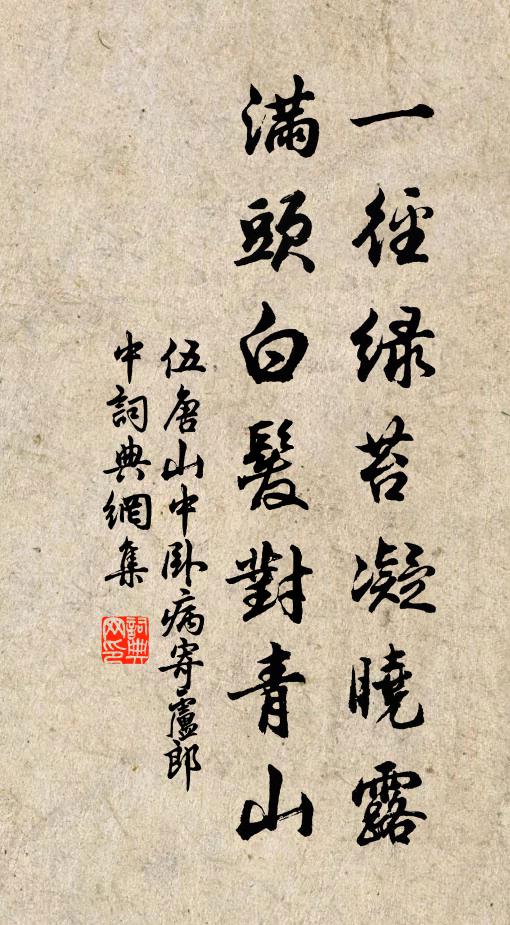 一徑綠苔凝曉露
滿頭白髮對青山
伍唐山中臥病寄盧郎
中詞典網集
詞典
网印